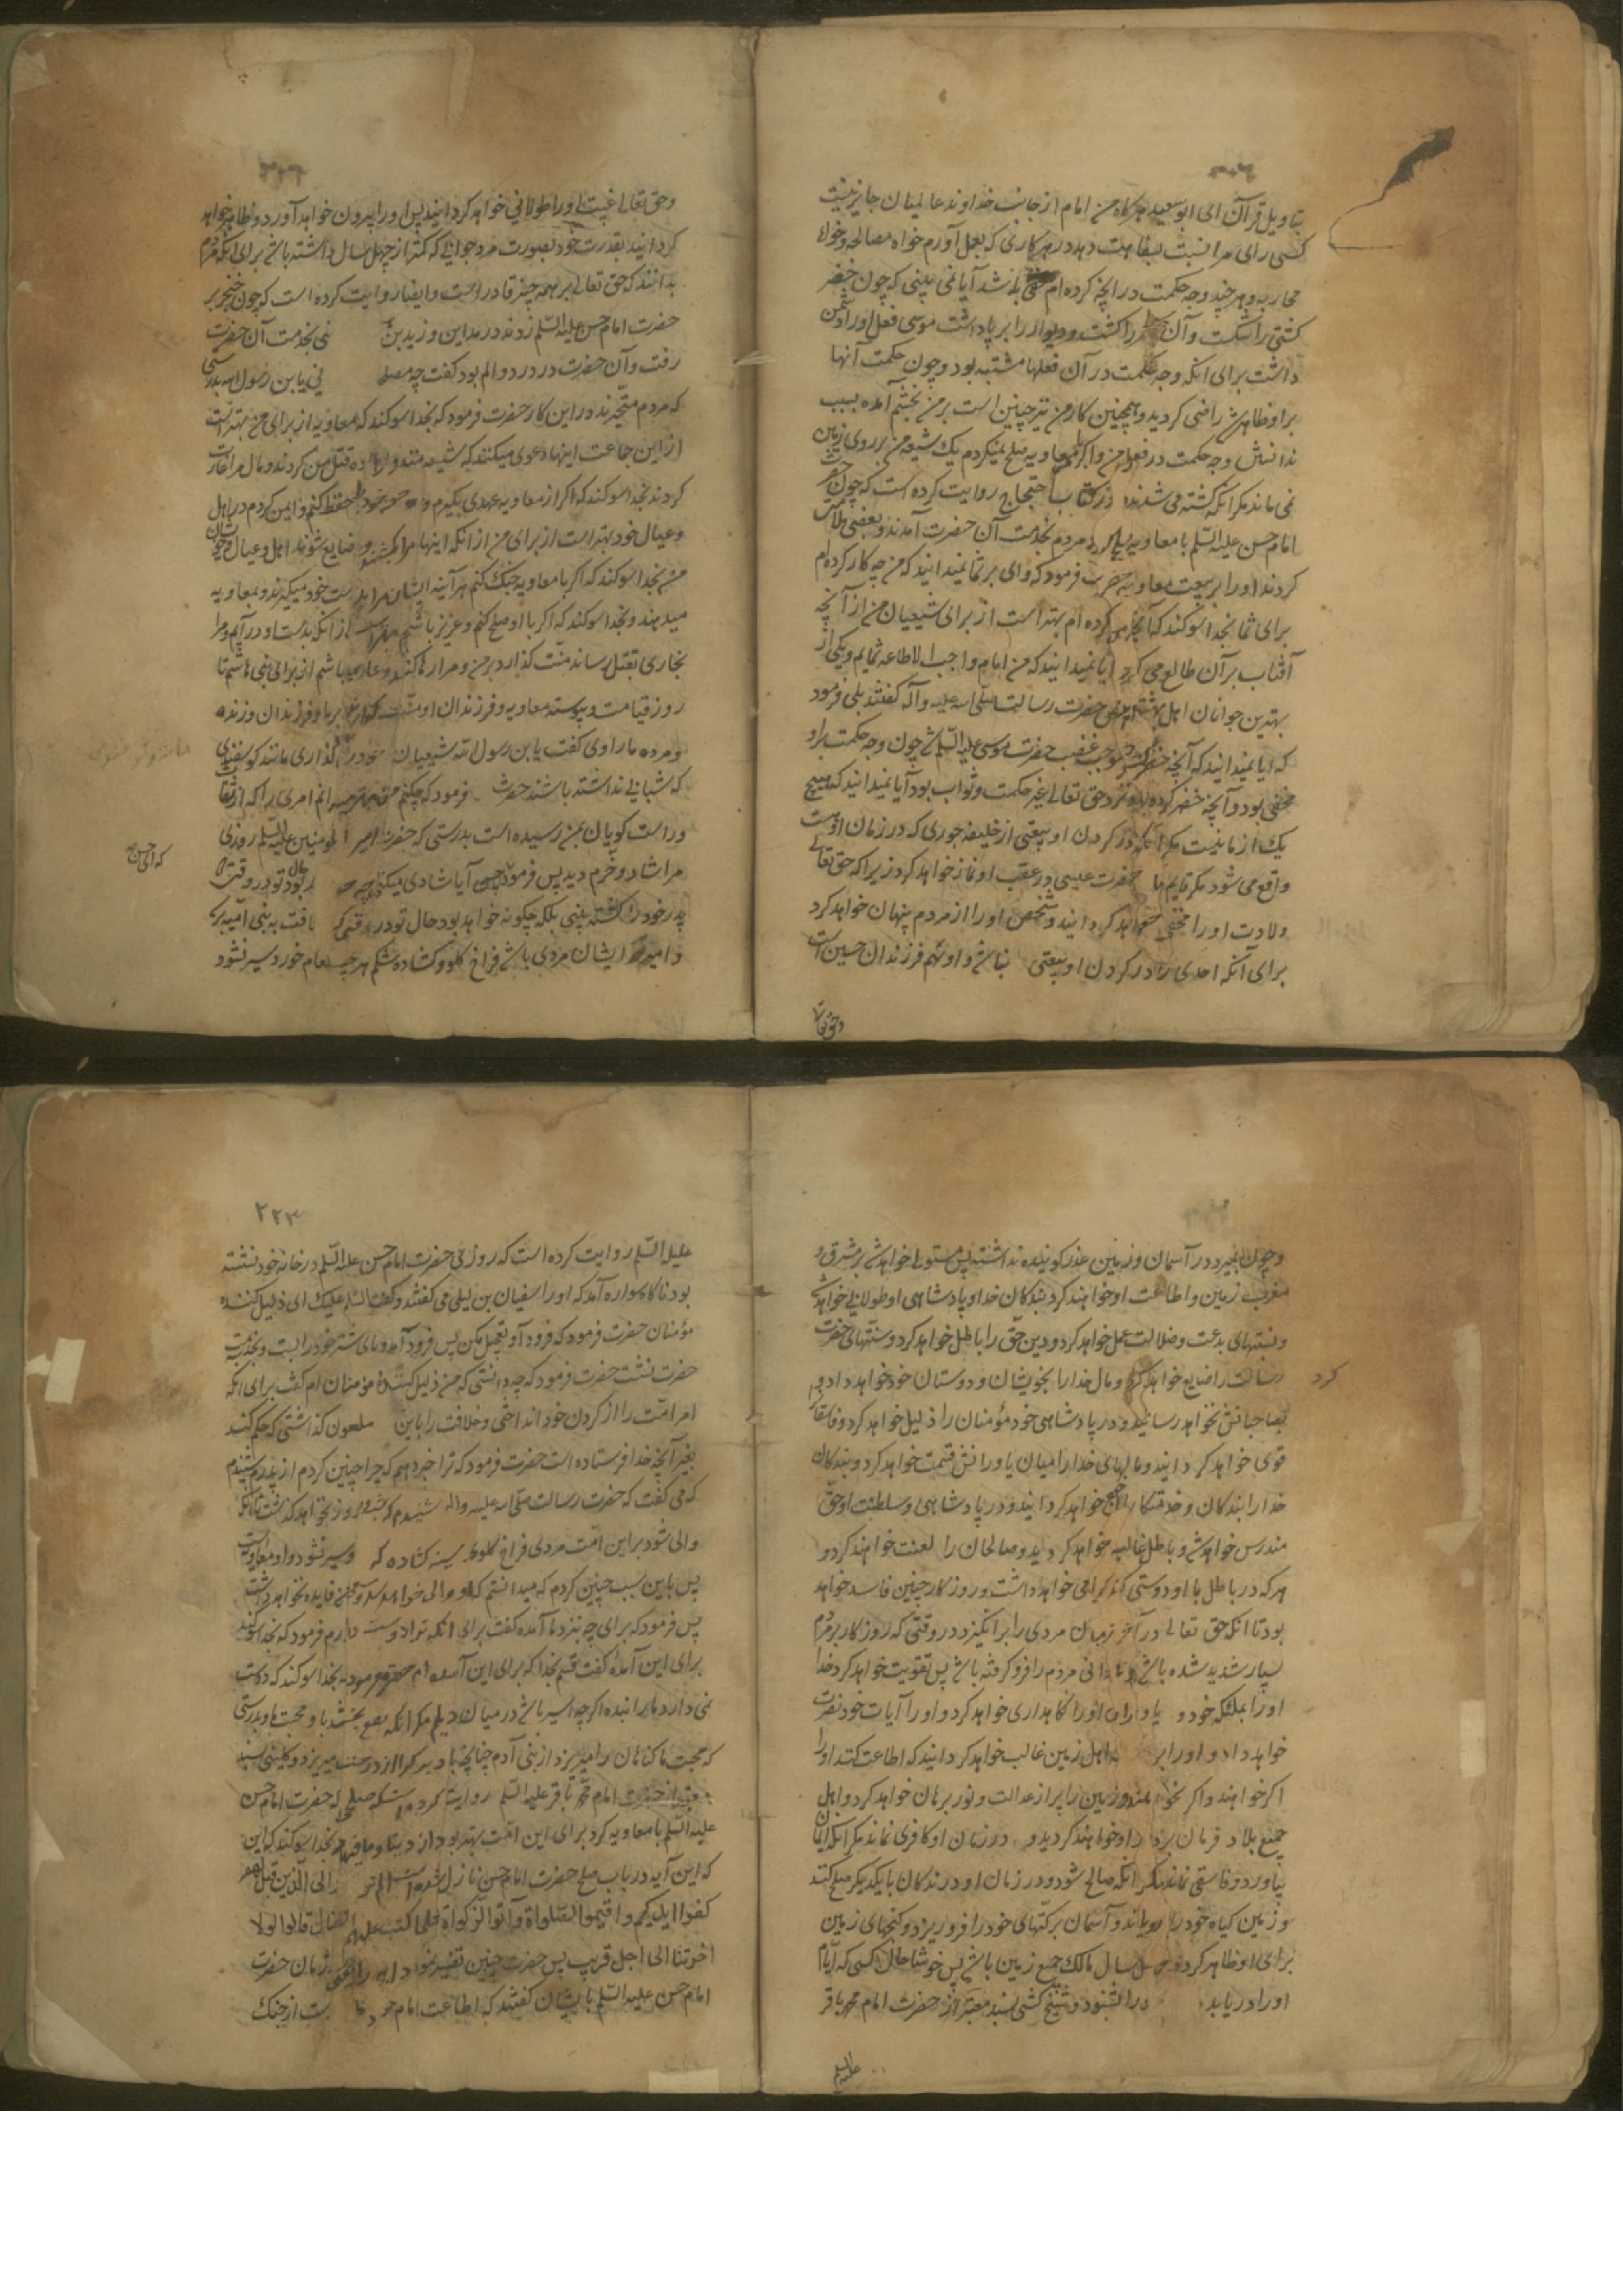 بتاویل قرآن ای ابو سعید هرگاه من امام از جانب خداوند عالمیان جایز نیست
کسی رای مرا نسبت بسفاهت دهد در هر کاری که بعمل آورم خواه مصالحه و خواه
محاربه و هر چند وجه حکمت در آنچه کرده ام مخفی باشد آیا نمی بینی که چون خضر
کشتی را شکست و آن را کشت و دیوار را بر پا داشت موسی فعل او را دشمن
داشت برای آنکه وجه حکمت در آن فعلها مشتبه بود و چون حکمت آنها
بر او ظاهر شد راضی گردید و همچنین کار من نیز چنین است بر من بخشم آمده بسبب
ندانستن وجه حکمت در فعل من و اگر با معاویه صلح نمیکردم یک شیعه من بر روی زمین
نمی ماند مگر آنکه کشته می شدند در کتاب احتجاج روایت کرده است که چون حضرت
امام حسن علیه السّلم با معاویه صلح کرد مردم بخدمت آن حضرت آمدند و بعضی ملامت
کردند او را بر بیعت معاویه حضرت فرمود که وای بر شما نمیدانید که من چه کار کرده ام
برای شما بخدا سوکند که آنچه من کرده ام بهتر است از برای شیعیان من از آنچه
آفتاب بر آن طالع می گردد آیا نمیدانید که من امام واجب الاطاعه شمایم و یکی از
بهترین جوانان اهل بهشتم بنص حضرت رسالت صلی الله علیه و آله گفتند بلی فرمود
که آیا نمیدانید که آنچه خضر کرد موجب غضب حضرت موسی علیه السّلم شد چون وجه حکمت بر او
مخفی بود و آنچه خضر کرده بود نزد حق تعالی عین حکمت و ثواب بود آیا نمیدانید که هیچ
یک از ما نیست مگر آنکه در گردن او بیعتی از خلیفه جوری که در زمان اوست
واقع می شود مگر قایم ما حضرت عیسی در عقب او نماز خواهد کرد زیرا که حق تعالی
ولادت او را مخفی خواهد گردانید و شخص او را از مردم پنهان خواهد کرد
برای آنکه احدی را در گردن او بیعتی نباشد و او نهم فرزندان حسین است
وحق تعالی
وحق تعالی غیبت او را طولانی خواهد گردانید پس او را بیرون خواهد آورد و ظاهر خواهد
گردانید بقدرت خود بصورت مرد جوانی که کمتر از چهل سال داشته باشد برای آنکه مردم
بدانند که حق تعالی بر همه چیز قادر است و ایضا روایت کرده است که چون خنجر بر
حضرت امام حسن علیه السّلم زدند در مداین و زید بن نی بخدمت آن حضرت
رفت و آن حضرت در درد و الم بود گفت چه مصلحت نی یابن رسول الله بدرستی
که مردم متحیرند در این کار حضرت فرمود که بخدا سوکند که معاویه از برای من بهتر است
از این جماعت اینها دعوی میکنند که شیعه منند و اراده قتل من کردند و مال مرا غارت
کردند بخدا سوکند که اگر از معاویه عهدی بگیرم و خون خود را حفظ کنم و ایمن گردم در اهل
و عیال خود بهتر است از برای من از آنکه اینها مرا بکشند و ضایع شوند اهل و عیال و خویشان
من بخدا سوکند که اگر با معاویه جنگ کنم هر آینه ایشان مرا بدست خود میگیرند و بمعاویه
میدهند و بخدا سوکند که اگر با او صلح کنم و عزیز باشم بهتر است از آنکه بدست او در آیم و مرا
بخاری بقتل رساند یا منت گذارد بر من و مرا رها کند و عاری باشم از برای بنی هاشم تا
روز قیامت و پیوسته معاویه و فرزندان او منت گذارند بر ما و فرزندان و زنده
و مرده ما راوی گفت یابن رسول الله شیعیان خود را می گذاری مانند گوسفندی
که شبانی نداشته باشند حضرت فرمود که چکنم من بهتر میدانم امری را که از ثقات
و راست گویان بمن رسیده است بدرستی که حضرت امیر المومنین علیه السّلم روزی
مرا شاد و خرم دید پس فرمود ای حسن آیا شادی میکنی چه حال بود تو در وقتی که
پدر خود را کشته بینی بلکه چگونه خواهد بود حال تو در وقتی که خلافت به بنی امیه برسد
و امیر ایشان مردی باشد فراخ گلو و گشاده شکم هر چند طعام خورد سیر نشود
که ای حسن
و چون بمیرد در آسمان و زمین عذر گوینده نداشته پس مستولی خواهد شد بر مشرق و
مغرب زمین و اطاعت او خواهند کرد بندگان خدا و پادشاهی او طولانی خواهد شد
و بسنتهای بدعت و ضلالت عمل خواهد کرد و دین حق را باطل خواهد کرد و سنّتهای حضرت
رسالت را ضایع خواهد کرد و مال خدا را بخویشان و دوستان خود خواهد داد و
کرد
بصاحبانش نخواهد رسانید و در پادشاهی خود مؤمنان را ذلیل خواهد کرد و فاسقان
قوی خواهد گردانید و مالهای خدا را میان یاورانش قسمت خواهد کرد و بندگان
خدا را بندگان و خدمتکار خواهد گردانید و در پادشاهی و سلطنت او حقّ
مندرس خواهد شد و باطل غالب خواهد گردید و صالحان را لعنت خواهند کرد و
هر که در باطل با او دوستی کند گرامی خواهد داشت و روزگار چنین فاسد خواهد
بود تا آنکه حق تعالی در آخر زمان مردی را بر انگیزد در وقتی که روزگار بر مردم
بسیار شدید شده باشد و نادانی مردم را فرو گرفته باشد پس تقویت خواهد کرد خدا
او را بملئکه خود و یاوران او را نگاهداری خواهد کرد و او را بآیات خود نصرت
خواهد داد و او را بر اهل زمین غالب خواهد گردانید که اطاعت کنند او را
اگر خواهند و اگر نخواهند و زمین را پر از عدالت و نور برهان خواهد کرد و اهل
جمیع بلاد فرمان بردار او خواهند گردید و در زمان او کافری نماند مگر آنکه ایمان
بیاورد و فاسقی نماند مگر آنکه صالح شود و در زمان او درندگان با یکدیگر صلح کنند
و زمین گیاه خود را برویاند و آسمان برکتهای خود را فرو ریزد و گنجهای زمین
برای او ظاهر گردد و چهل سال مالک جمیع زمین باشد پس خوشا حال کسی که ایّام
او را دریابد در الشنود و شیخ کشی بسند معتبر از حضرت امام محمد باقر
علیه السلم
۲۲۳
علیه السّلم روایت کرده است که روزی حضرت امام حسن علیه السّلم در خانه خود نشسته
بود ناگاه سواره آمد که او را سفیان بن لیلی می گفتند و گفت السّلم علیک ای ذلیل کننده
مؤمنان حضرت فرمود که فرود آ و تعجیل مکن پس فرود آمد و پای شتر خود را بست و بخدمت
حضرت نشست حضرت فرمود که چه دانستی که من ذلیل کننده مؤمنان ام گفت برای آنکه
امر امت را از گردن خود انداختی و خلافت را باین ملعون گذاشتی که حکم کند
بغیر آنچه خدا فرستاده است حضرت فرمود که ترا خبر دهم که چرا چنین کردم از پدرم شنیدم
که می گفت که حضرت رسالت صلّی الله علیه واله شنیدم که شب و روز نخواهد گذشت تا آنکه
والی شود بر این امّت مردی فراخ گلوی سینه گشاده که و سیر نشود و او معاویه است
پس باین سبب چنین کردم که میدانستم که او والی خواهد شد و سعی من فایده نخواهد داشت
پس فرمود که برای چه بنزد ما آمده گفت برای آنکه ترا دوست دارم فرمود که بخدا سوکند
برای این آمده گفت قسم بخدا که برای این آمده ام حضرت فرمود بخدا سوکند که دوست
نمی دارد ما را بنده اگر چه اسیر باشد در میان دیلم مگر آنکه نفع بخشد باو محبت ما و بدرستی
که محبت ما گناهان را میریزد از بنی آدم چنانچه باد برگ را از درخت میریزد و کلینی بسند
معتبر از حضرت امام محمد باقر علیه السّلم روایت کرده است که صلحی که حضرت امام حسن
علیه السّلم با معاویه کرد برای این امّت بهتر بود از دنیا و ما فیها و بخدا سوکند که این
که این آیه در باب صلح حضرت امام حسن نازل شده است الم تر الی الذین قیل لهم
کفوا ایدیکم و اقیموا الصّلواة و آتوا الزکواة فلما کتب علیهم القتال قالوا لولا
اخرتنا الی اجل قریب پس حضرت چنین تفسیر نمود این را یعنی در زمان حضرت
امام حسن علیه السّلم بایشان گفتند که اطاعت امام خود دست از جنک